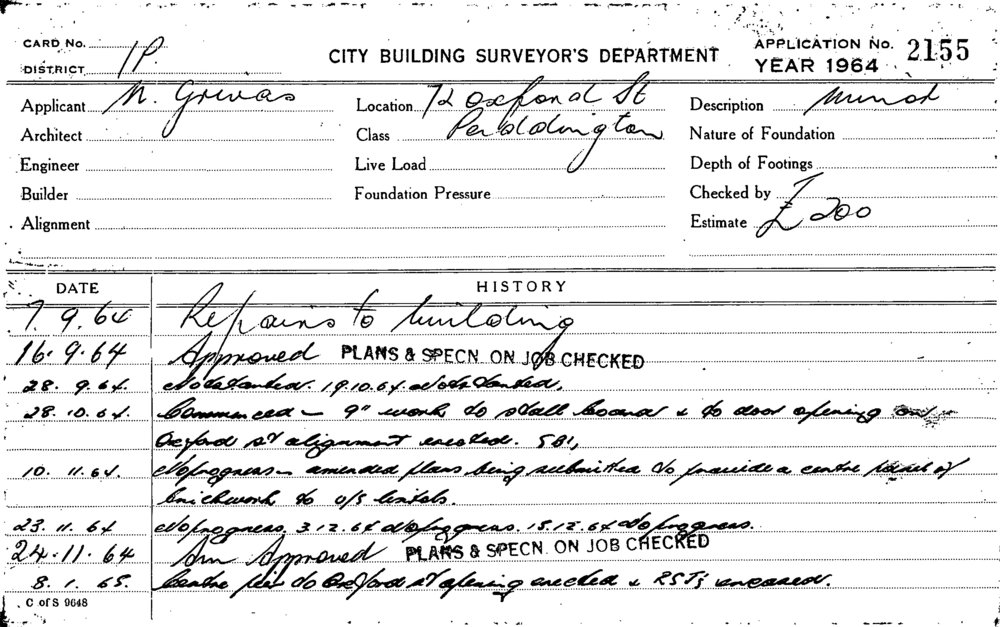 CARD No. 1P.
DISTRICT
CITY BUILDING SURVEYOR'S DEPARTMENT
APPLICATION No. 2155
YEAR 1964
Applicant N. Grivas
Location 72 Oxford St
Description Minor
Architect
Class Paddington
Nature of Foundation
Engineer
Live Load
Depth of Footings
Builder
Foundation Pressure
Checked by
Alignment
Estimate £200
DATE HISTORY
7. 9. 64 Repairs to building
16. 9. 64 Approved PLANS & SPECN. ON JOB CHECKED
28. 9. 64. Not started. 19.10.64. Not started.
28. 10. 64. Commenced - 9" work to stall board & to door opening on
Oxford St alignment erected. SBI,
10. 11. 64. No progress - amended plans being submitted to provide a centre of
brickwork to o/s lintels.
23. 11. 64 No progress. 3.12.64 No progress. 15.12.64 No progress.
24. 11. 64 Am Approved PLANS & SPECN. ON JOB CHECKED
8. 1. 65. Centre pier to Oxford St opening erected & RSJs encased.
C of S 9648